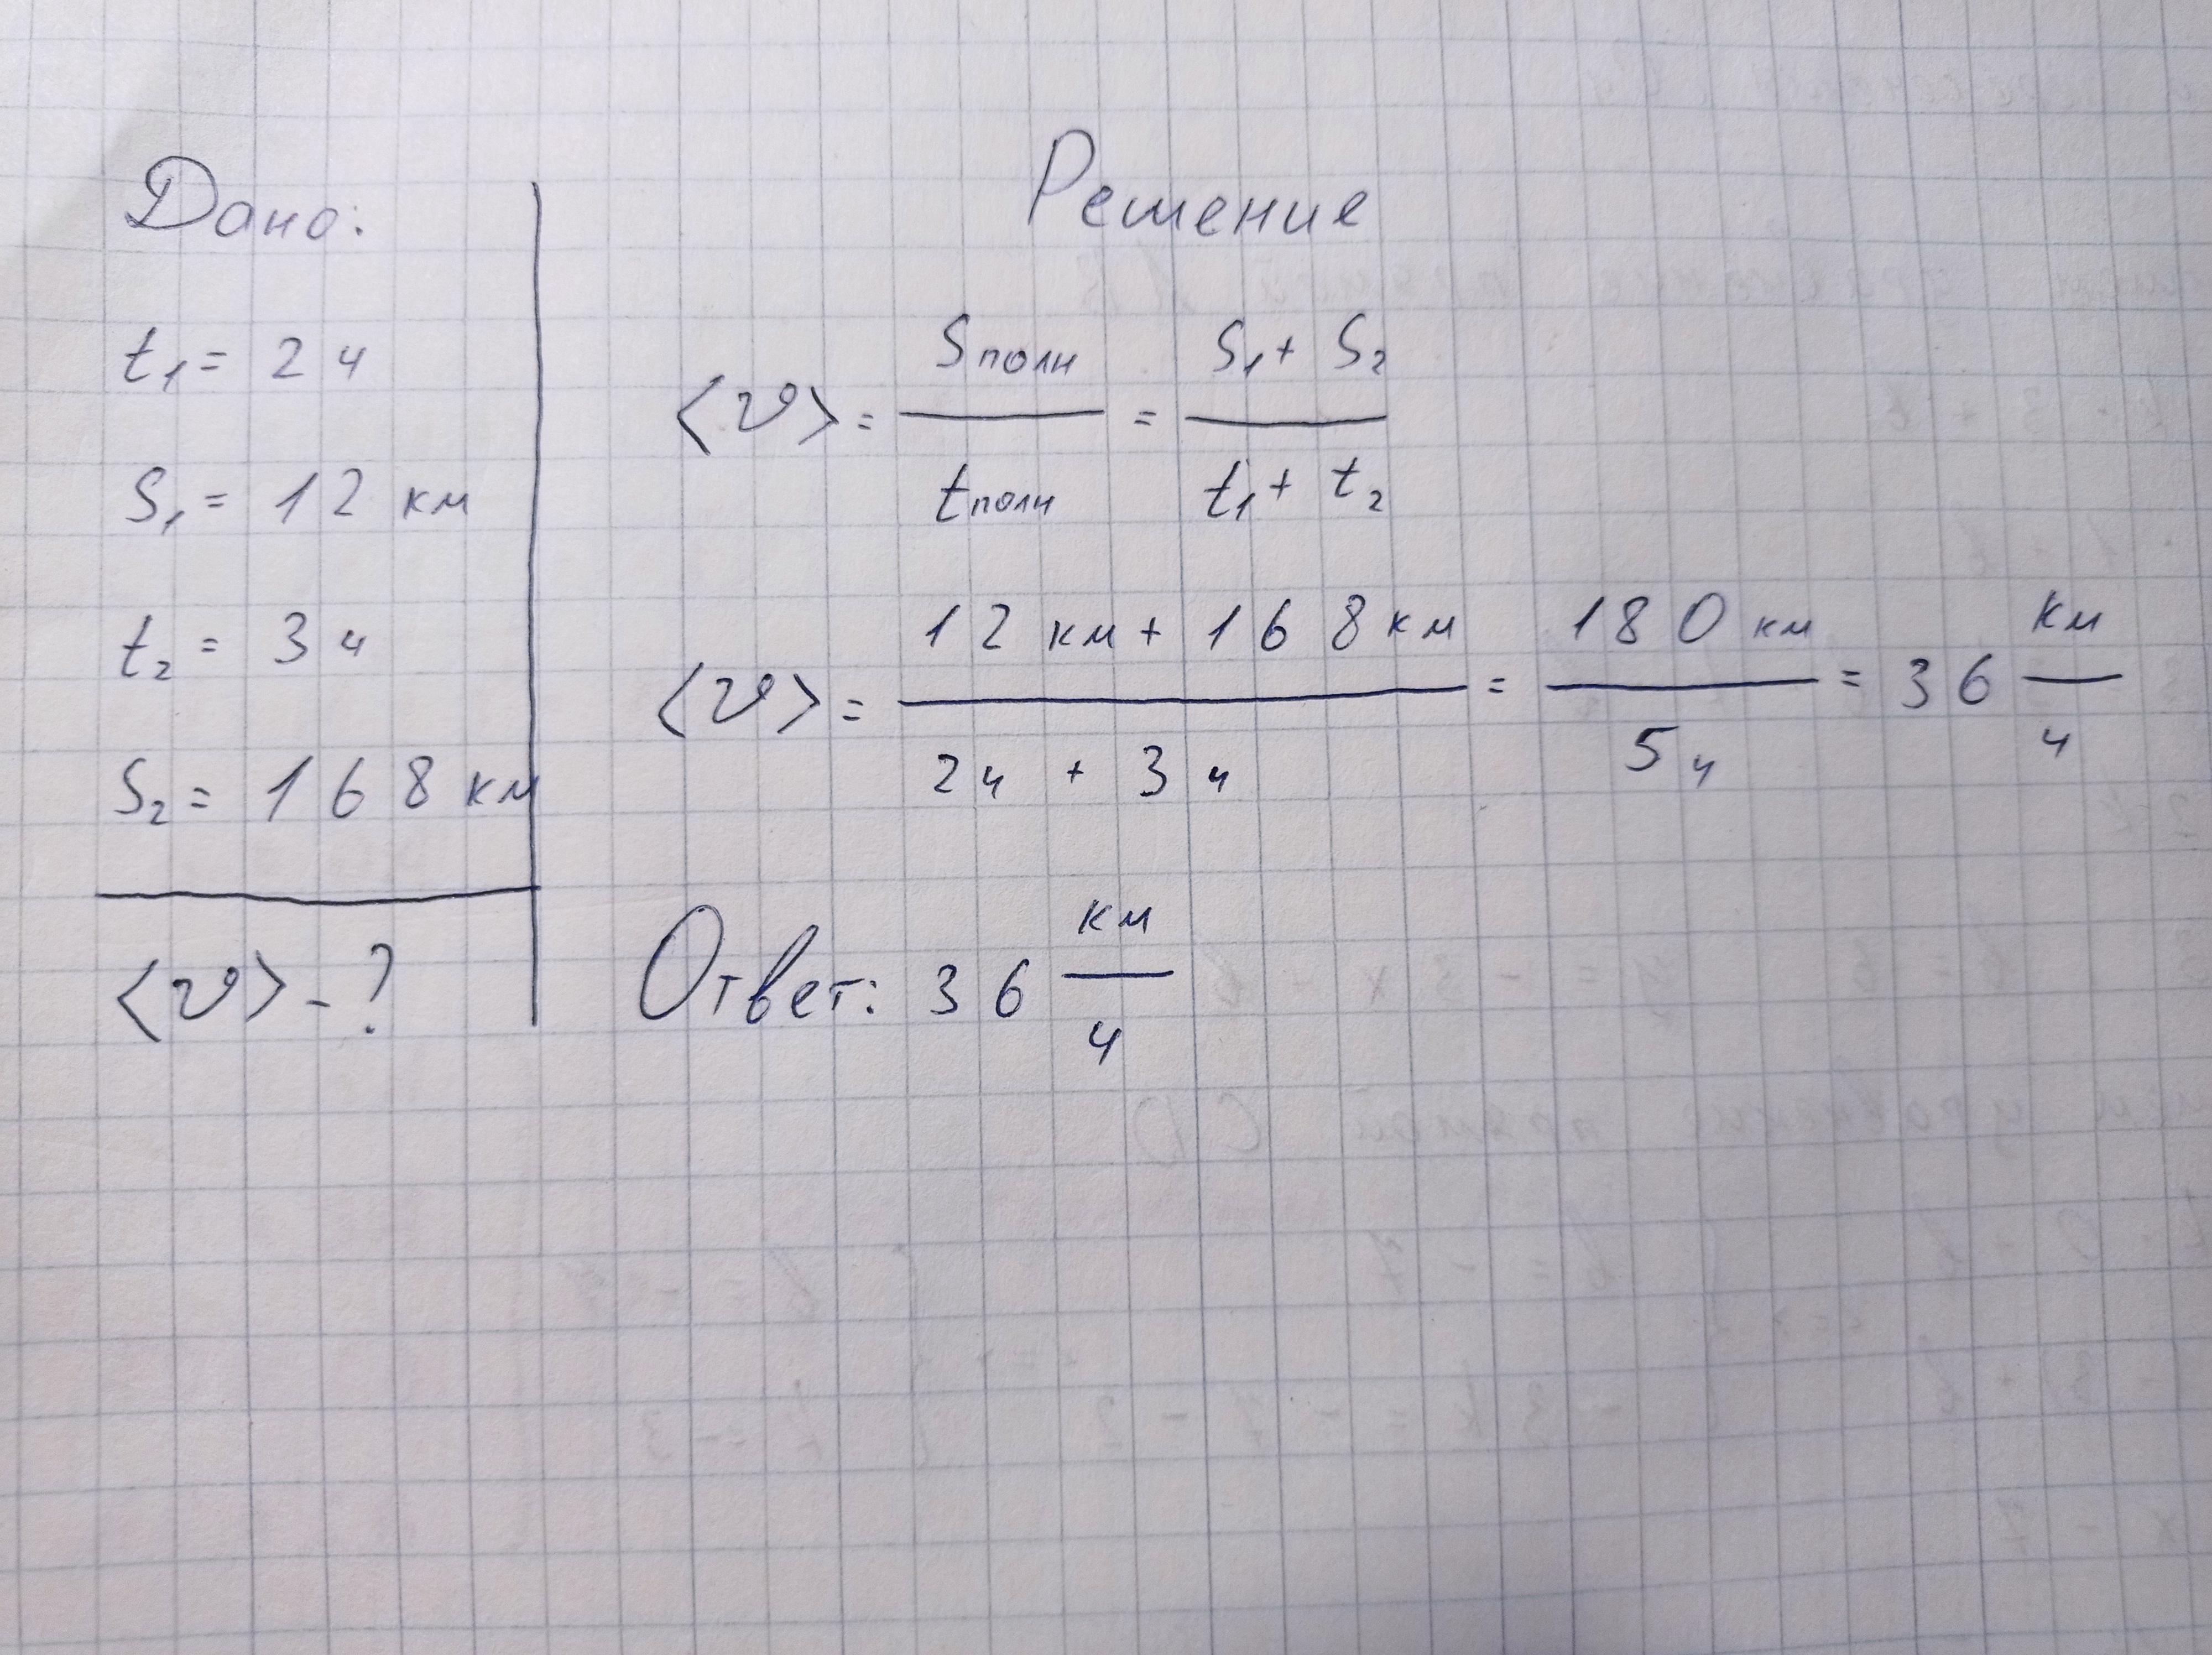 Дано:
t₁ = 2 ч
S₁ = 12 км
t₂ = 3 ч
S₂ = 168 км
⟨v⟩ - ?
Решение
⟨v⟩ = Sполн / tполн = (S₁ + S₂) / (t₁ + t₂)
⟨v⟩ = (12 км + 168 км) / (2 ч + 3 ч) = 180 км / 5 ч = 36 км/ч
Ответ: 36 км/ч